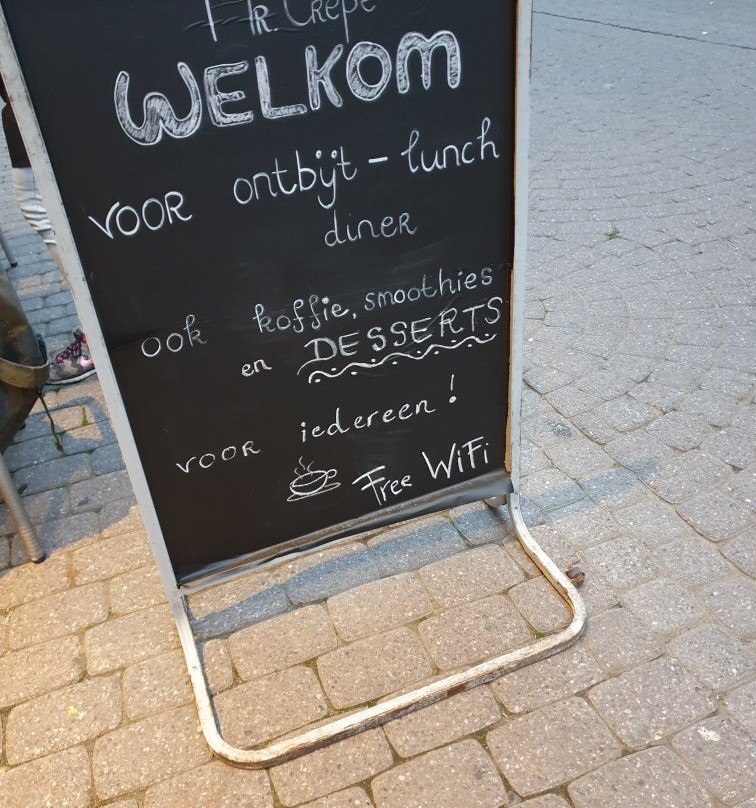 Mr. Crêpe
WELKOM
VOOR ontbijt - lunch
diner
ook koffie, smoothies
en DESSERTS
VOOR iedereen!
Free WiFi